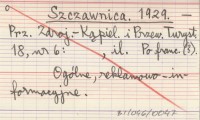 Szczawnica. 1929. —
Prz. Zdroj.-Kąpiel. i Przew. Turyst.
18, nr 6: , il. Po franc. (?).
Ogólne, reklamowo-in-
formacyjne.